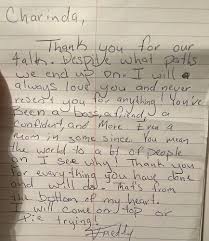 Charinda,
Thank you for our
talks. Despite what paths
we end up on. I will
always love you and never
resent you for anything! You've
been a boss, a friend, a
confident, and more. Even a
mom in some since. You mean
the world to a lot of people
on I see why! Thank you
for everything you have done
and will do. That's from
the bottom of my heart.
I will come on top or
die trying!